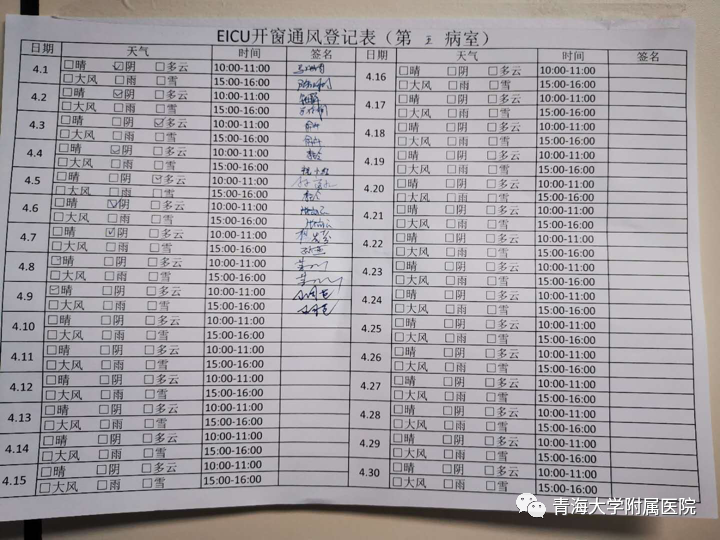 EICU开窗通风登记表（第 五 病室）
日期 天气 时间 签名 日期 天气 时间 签名
4.1 □晴 ☑阴 □多云 10:00-11:00 4.16 □晴 □阴 □多云 10:00-11:00
□大风 □雨 □雪 15:00-16:00 □大风 □雨 □雪 15:00-16:00
4.2 □晴 ☑阴 □多云 10:00-11:00 4.17 □晴 □阴 □多云 10:00-11:00
□大风 □雨 □雪 15:00-16:00 □大风 □雨 □雪 15:00-16:00
4.3 □晴 □阴 ☑多云 10:00-11:00 4.18 □晴 □阴 □多云 10:00-11:00
□大风 □雨 □雪 15:00-16:00 □大风 □雨 □雪 15:00-16:00
4.4 □晴 ☑阴 □多云 10:00-11:00 4.19 □晴 □阴 □多云 10:00-11:00
□大风 □雨 □雪 15:00-16:00 □大风 □雨 □雪 15:00-16:00
4.5 □晴 □阴 ☑多云 10:00-11:00 4.20 □晴 □阴 □多云 10:00-11:00
□大风 □雨 □雪 15:00-16:00 □大风 □雨 □雪 15:00-16:00
4.6 □晴 ☑阴 □多云 10:00-11:00 4.21 □晴 □阴 □多云 10:00-11:00
□大风 □雨 □雪 15:00-16:00 □大风 □雨 □雪 15:00-16:00
4.7 □晴 ☑阴 □多云 10:00-11:00 4.22 □晴 □阴 □多云 10:00-11:00
□大风 □雨 □雪 15:00-16:00 □大风 □雨 □雪 15:00-16:00
4.8 ☑晴 □阴 □多云 10:00-11:00 4.23 □晴 □阴 □多云 10:00-11:00
□大风 □雨 □雪 15:00-16:00 □大风 □雨 □雪 15:00-16:00
4.9 ☑晴 □阴 □多云 10:00-11:00 4.24 □晴 □阴 □多云 10:00-11:00
□大风 □雨 □雪 15:00-16:00 □大风 □雨 □雪 15:00-16:00
4.10 □晴 □阴 □多云 10:00-11:00 4.25 □晴 □阴 □多云 10:00-11:00
□大风 □雨 □雪 15:00-16:00 □大风 □雨 □雪 15:00-16:00
4.11 □晴 □阴 □多云 10:00-11:00 4.26 □晴 □阴 □多云 10:00-11:00
□大风 □雨 □雪 15:00-16:00 □大风 □雨 □雪 15:00-16:00
4.12 □晴 □阴 □多云 10:00-11:00 4.27 □晴 □阴 □多云 10:00-11:00
□大风 □雨 □雪 15:00-16:00 □大风 □雨 □雪 15:00-16:00
4.13 □晴 □阴 □多云 10:00-11:00 4.28 □晴 □阴 □多云 10:00-11:00
□大风 □雨 □雪 15:00-16:00 □大风 □雨 □雪 15:00-16:00
4.14 □晴 □阴 □多云 10:00-11:00 4.29 □晴 □阴 □多云 10:00-11:00
□大风 □雨 □雪 15:00-16:00 □大风 □雨 □雪 15:00-16:00
4.15 □晴 □阴 □多云 10:00-11:00 4.30 □晴 □阴 □多云 10:00-11:00
□大风 □雨 □雪 15:00-16:00 □大风 □雨 □雪 15:00-16:00
青海大学附属医院